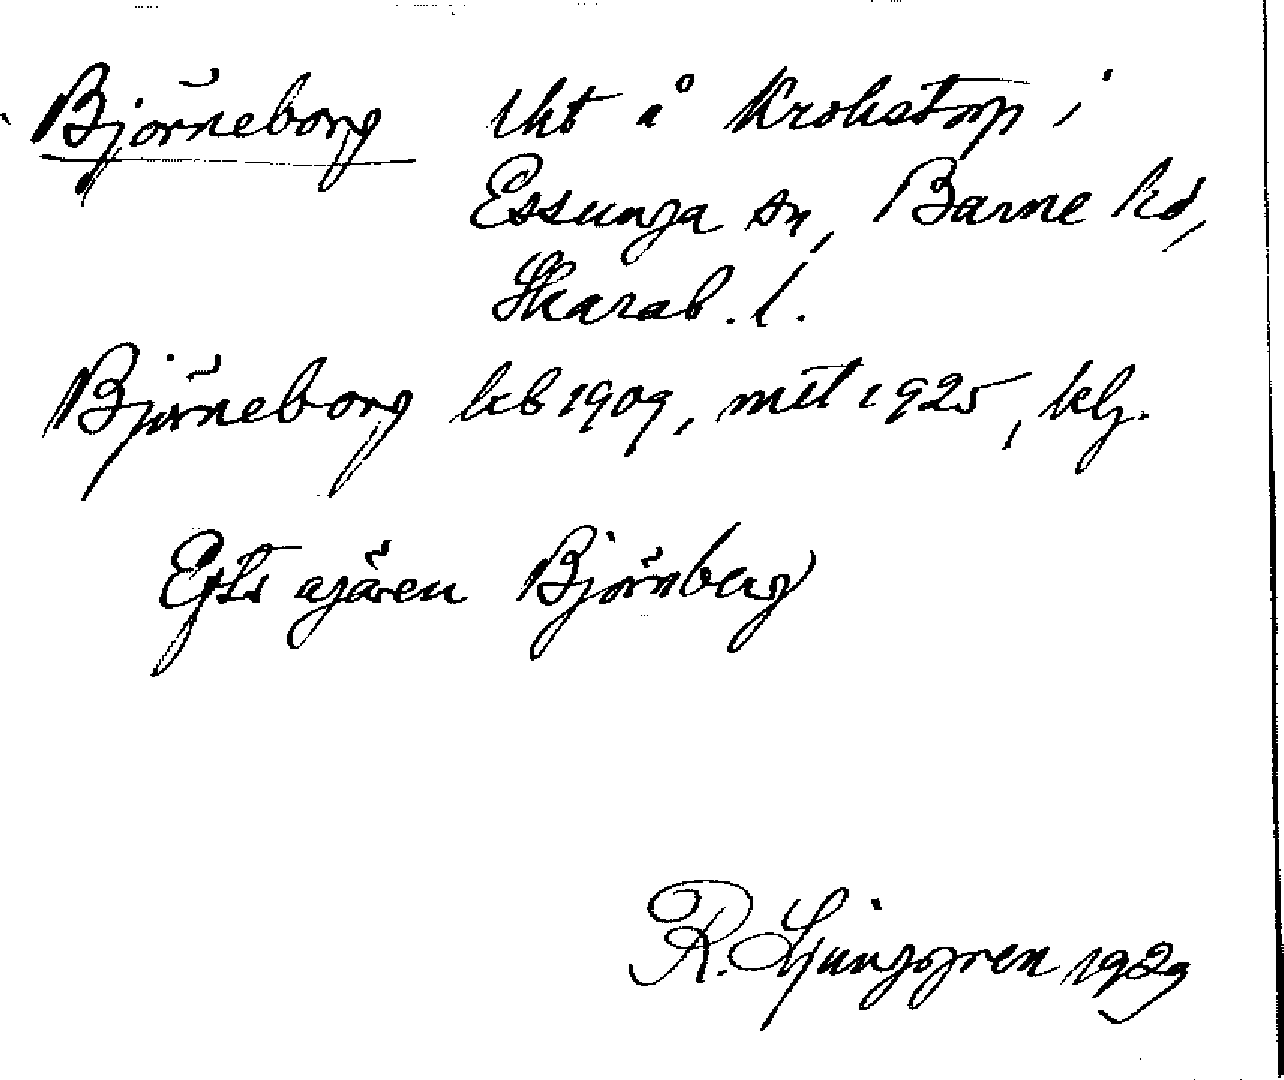 Björneborg lht å Krokstorp i
Essunga sn, Barne hd,
Skarab. l.
Björneborg kb 1909, mtl 1925, klj.
Efter ägaren Björnberg
R. Ljunggren 1929